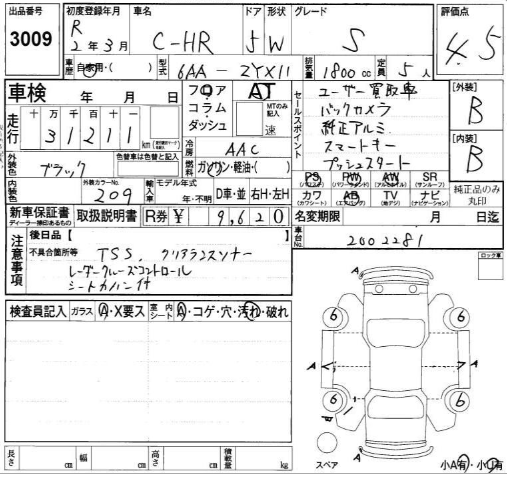 出品番号 初度登録年月 車名 ドア 形状 グレード 評価点
3009 R 2年3月 C-HR 5 W S 4.5
車歴 自家用・( ) 型式 6AA - ZYX11 排気量 1800cc 定員 5人
車検 年 月 日
フロア コラム・ダッシュ AT MTのみ記入 速
走行 十万千百十一
31211 km
冷房 AAC
燃料 ガソリン・軽油・( )
外装色 ブラック 色替車は色替と記入
内装色 外装カラーNo. 209 輸入車 モデル年式 年・不明 D車・並 右H・左H
新車保証書 ディーラー捺印あるもの 取扱説明書 R券 ¥ 9,620
セールスポイント
ユーザー買取車
バックカメラ
純正アルミ
スマートキー
プッシュスタート
[外装] B
[内装] B
PS (パワステ) PW (パワーウィンド) AW (アルミホイル) SR (サンルーフ)
カワ (カワシート) AB (エアバッグ) TV (地デジ) ナビ (ナビゲーション)
純正品のみ丸印
名変期限 月 日迄
車台No. 2002281
注意事項
後日品【
不具合箇所等 TSS、クリアランスソナー
レーダークルーズコントロール
シートカバー付
検査員記入 ガラス A・X要ス 室内シート A・コゲ・穴・汚れ・破れ
ロック車
A
6 6
A A
6 6
A
スペア
小A有・小U有
長さ cm 幅 cm 高さ cm 積載量 kg